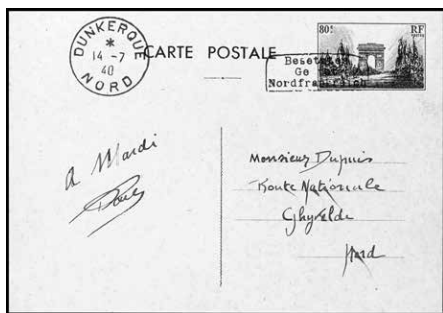 DUNKERQUE
*
14 -7
40
NORD
CARTE POSTALE
80ᶜ
RF
Besetztes
Gebiet
Nordfrankreich
A Mardi
Monsieur Dupuis
Route Nationale
Ghyvelde
Nord